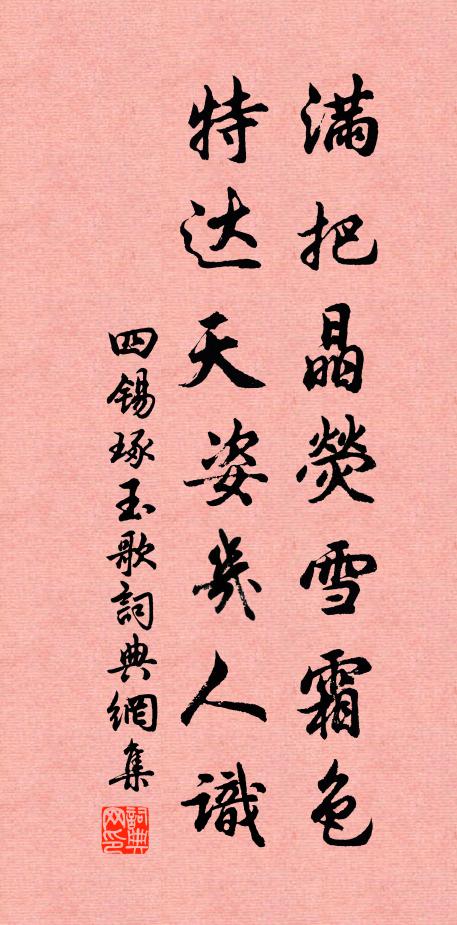 满把晶荧雪霜色
特达天姿几人識
四锡琢玉歌詞典網集
詞典网印